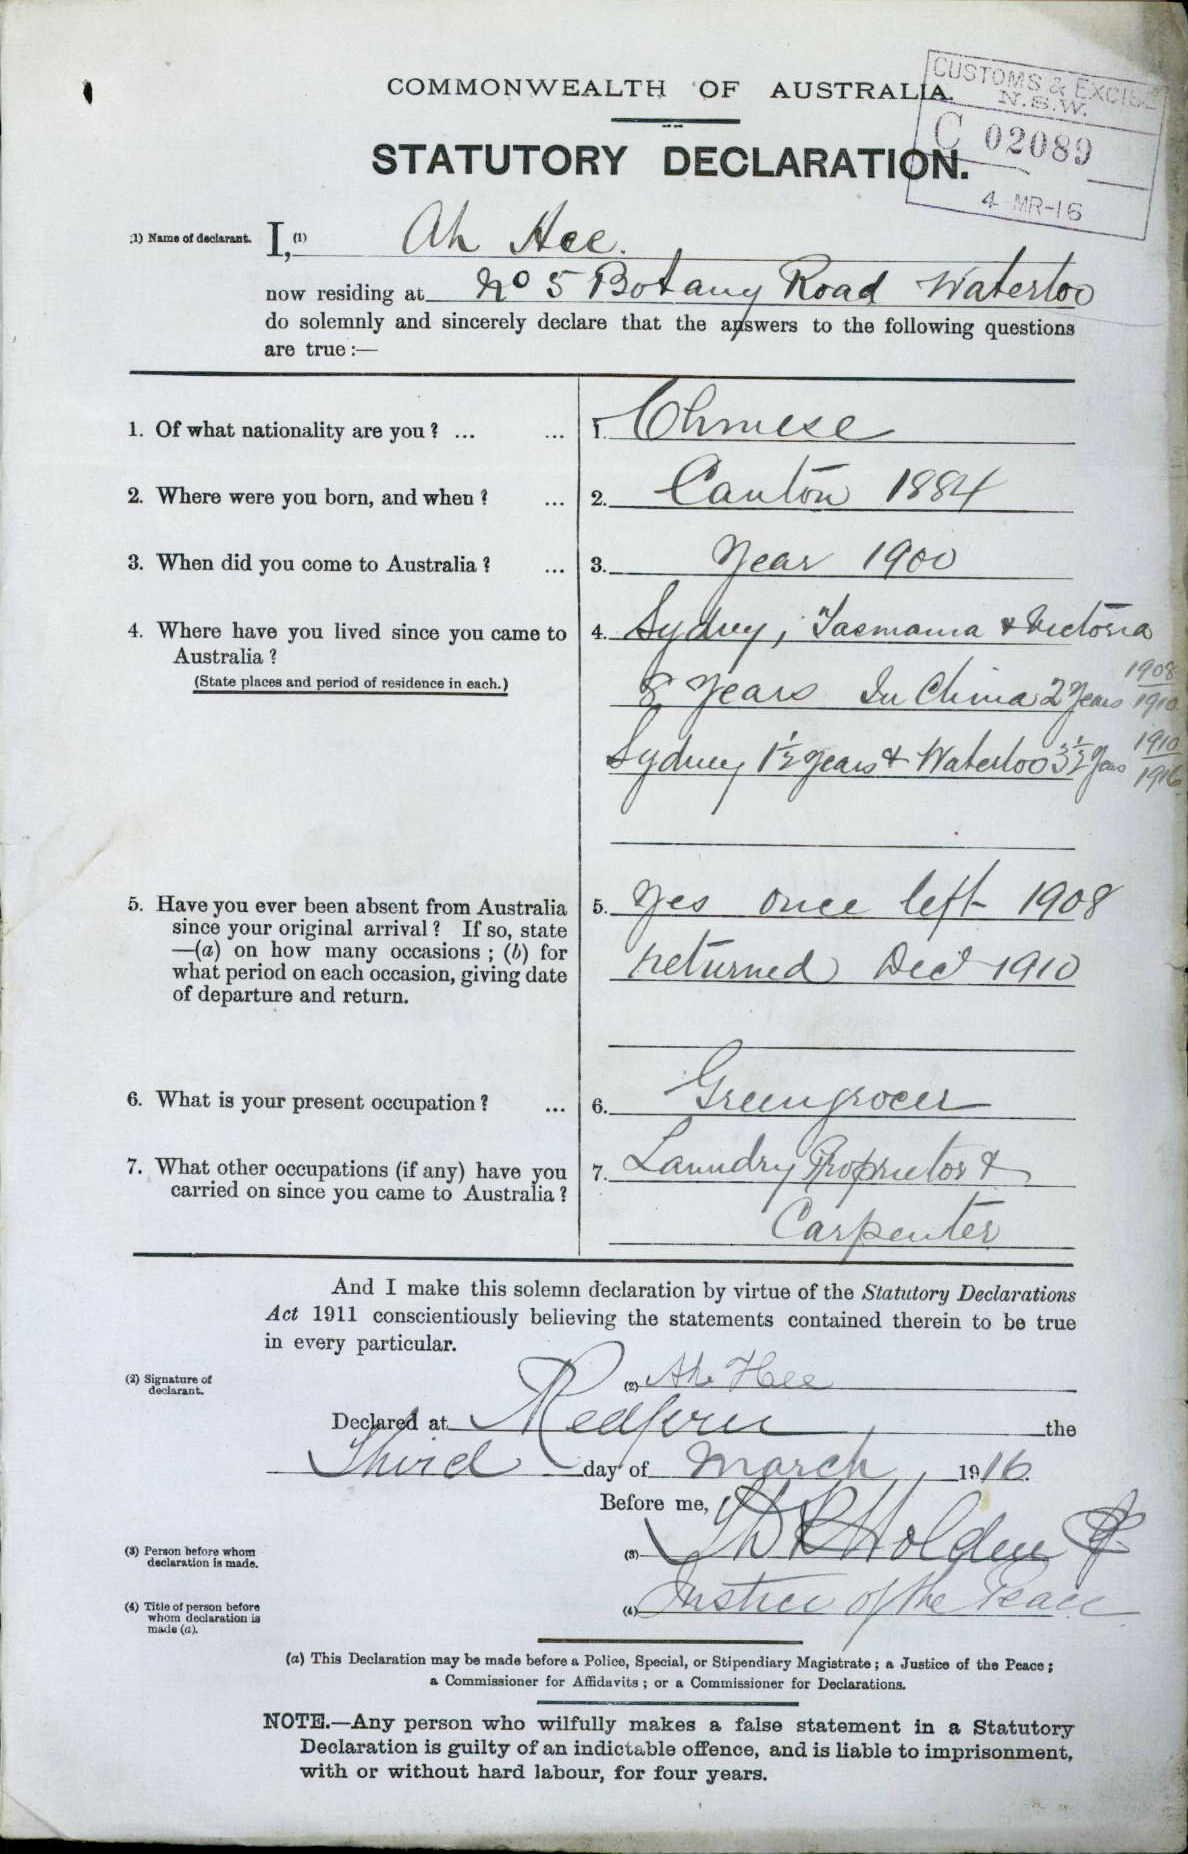 COMMONWEALTH OF AUSTRALIA.
CUSTOMS & EXCISE
N.S.W.
C 02089
4 MR-16
STATUTORY DECLARATION.
(1) Name of declarant. I, (1) Ah Hee.
now residing at No 5 Botany Road Waterloo
do solemnly and sincerely declare that the answers to the following questions
are true :—
1. Of what nationality are you ? ... ... 1. Chinese
2. Where were you born, and when ? ... 2. Canton 1884
3. When did you come to Australia ? ... 3. Year 1900
4. Where have you lived since you came to 4. Sydney, Tasmania & Victoria
Australia ?
(State places and period of residence in each.)
8 Years In China 2 Years 1908 1910
Sydney 1½ years & Waterloo 3½ Years 1910 1916
5. Have you ever been absent from Australia 5. Yes once left 1908
since your original arrival ? If so, state
—(a) on how many occasions ; (b) for
what period on each occasion, giving date
of departure and return.
returned Decr 1910
6. What is your present occupation ? ... 6. Greengrocer
7. What other occupations (if any) have you 7. Laundry Proprietor &
carried on since you came to Australia ?
Carpenter
And I make this solemn declaration by virtue of the Statutory Declarations
Act 1911 conscientiously believing the statements contained therein to be true
in every particular.
(2) Signature of
declarant.
(2) Ah Hee
Declared at Redfern the
Third day of March, 1916.
Before me,
(3) Person before whom
declaration is made.
(3) Holden JP
(4) Title of person before
whom declaration is
made (a).
(4) Justice of the Peace
(a) This Declaration may be made before a Police, Special, or Stipendiary Magistrate ; a Justice of the Peace ;
a Commissioner for Affidavits ; or a Commissioner for Declarations.
NOTE.—Any person who wilfully makes a false statement in a Statutory
Declaration is guilty of an indictable offence, and is liable to imprisonment,
with or without hard labour, for four years.